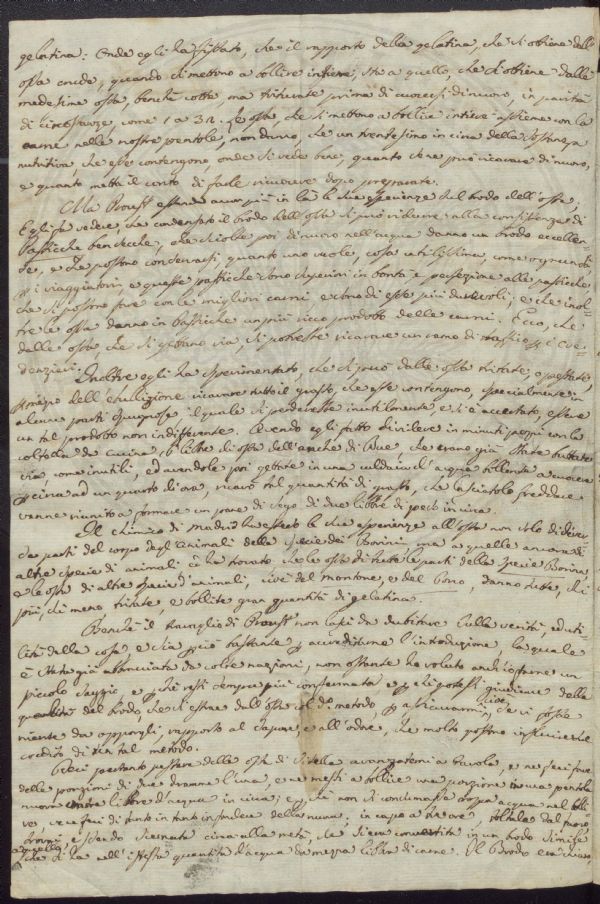 gelatina: Onde egli ha fissato, che il rapporto della gelatina, che si ottiene dall'
ossa crude, quando si mettono a bollire intiere, sta a quello, che si ottiene dalle
medesime ossa, benchè cotte ma triturate prima di cuocersi di nuovo, in parità
di circostanze, come 1 a 32. Le ossa, che si mettono a bollire intiere assieme con la
carne nelle nostre pentole, non danno, che un trentesimo in circa della sostanza
nutritiva, che esse contengono, onde si vede bene, quanto se ne può ricavare di nuovo,
e quanto metta il conto di farle ricuocere dopo preparate.
Ma Proust estende ancor più in là le sue esperienze sul brodo dell'ossa;
Egli fa vedere, che condensato il brodo dell'ossa si può ridurre alla consistenza di
Pasticche ben secche, che sciolte poi di nuovo nell'acqua danno un brodo eccellen-
te, e che possono conservarsi quanto uno vuole, cosa utilissima, come ognun vede,
i viaggiatori, e queste pasticche sono superiori in bontà e perfezione alle pasticche,
che si possono fare con le migliori carni e sono di esse più durevoli; e che inol-
tre le ossa danno in Pasticche un più ricco prodotto delle carni. Ecco, che
dalle ossa, che si gettano via, si potrebbe ricavare un ramo di traffico
Inoltre egli ha sperimentato, che si può dalle ossa tritate, o pestate,
mezzo dell'ebullizione ricavare tutto il grasso, che esse contengono, specialmente in
alcune parti spugnose il quale si perderebbe inutilmente, e si è accertato, essere
un tal prodotto non indifferente. Avendo egli fatto dividere in minuti pezzi con la
coltella da cucina libbre di ossa dell'anche di Bue, che erano già state buttate
via, come inutili, ed avendole poi gettate in una caldaia d'acqua bollente a cuocere
circa ad un quarto di ora, ricavò tal quantità di grasso, che lasciatolo freddare
venne riunito a formare un pane di sego di due libbre di peso in circa.
Il chimico di Madrid ha esteso le sue esperienze all'ossa non solo di diver-
se parti del corpo degli animali della specie dei Bovini ma a quelle ancora di
altre specie di animali ed ha trovato che le ossa di tutte le parti della specie Bovina
e le ossa di altre specie d'animali, cioè del montone, e del Porco, danno tutte, chi
più, chi meno tritate, e bollite gran quantità di gelatina.
Benchè il travaglio di Proust non lasci da dubitare sulla verità, ed uti-
lità della cosa, e sia bastante accreditarne l'introduzione, la quale
è stata già abbracciata da colte nazioni, non ostante ho voluto anch'io farne un
piccolo saggio, e resti sempre più confermata e ch'io potessi giudicare della
qualità del brodo, che si estrae dall'ossa col metodo, assicurarmi, se vi fosse
niente da apporgli, rapporto al sapore, e all'odore, che molto possono influire sul
credito di un tal metodo.
Presi pertanto ossa di Vitella avanzatemi a tavola, e ne feci fare
delle porzioni di due dramme l'una, e ne messi a bollire una porzione in una pentola
nuova libbre d'acqua in circa; e non si consumasse troppa acqua nel bolli-
re, ce ne feci di tanto in tanto infondere della nuova; in capo a tre ore, tolta dal fuoco
trovai, essendo scemata circa alla metà, che si era convertita in un brodo simile
a quello, che si ha nell'istessa quantità d'acqua da mezza libbra di carne. Il Brodo era chiaro,